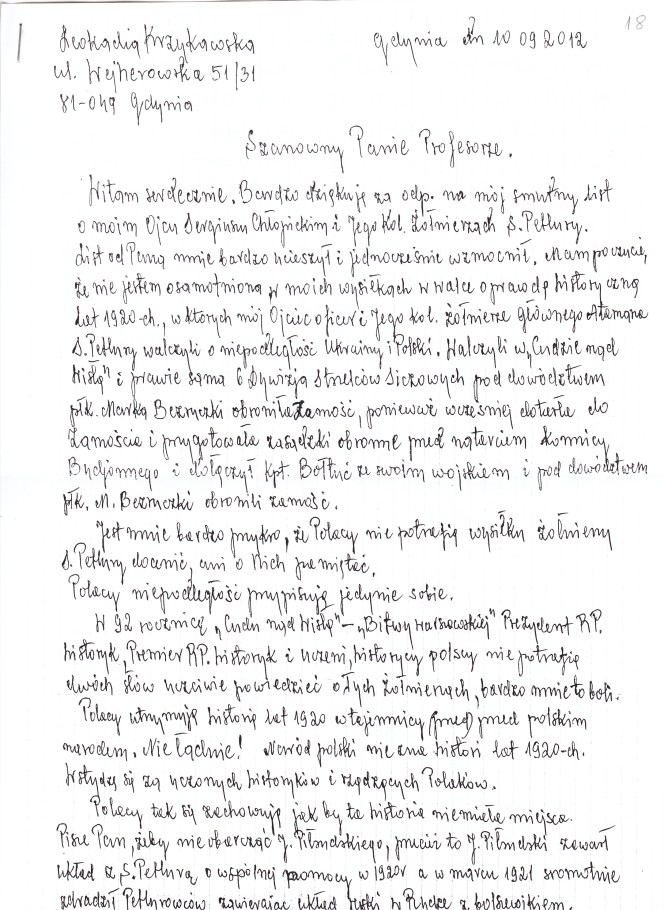 18
Leokadia Krzykawska Gdynia dn 10 09 2012
ul. Wejherowska 51/31
81-049 Gdynia
Szanowny Panie Profesorze.
Witam serdecznie. Bardzo dziękuję za odp. na mój smutny list
o moim Ojcu Sergiuszu Chłopickim i Jego kol. Żołnierzach S. Petlury.
List od Pana mnie bardzo ucieszył i jednocześnie wzmocnił. Mam poczucie,
że nie jestem osamotniona w moich wysiłkach w walce o prawdę historyczną
lat 1920-ch., w których mój Ojciec oficer i Jego kol. żołnierze głównego Atamana
S. Petlury walczyli o niepodległość Ukrainy i Polski. Walczyli w „Cudzie nad
Wisłą" i prawie sama 6 Dywizja Strelców Siczowych pod dowództwem
płk. Marka Bezruczki obroniła Zamość, ponieważ wcześniej dotarła do
Zamościa i przygotowała zasadzki obronne przed natarciem Konnicy
Budjonnego i dołączył kpt. Bołtuć ze swoim wojskiem i pod dowództwem
płk. M. Bezruczki obronili Zamość.
Jest mnie bardzo przykro, że Polacy nie potrafią wysiłku żołnierzy
S. Petlury docenić, ani o Nich pamiętać.
Polacy niepodległość przypisują jedynie sobie.
W 92 rocznicę „Cudu nad Wisłą" – „Bitwy warszawskiej" Prezydent RP.
historyk, Premier RP. historyk i uczeni, historycy polscy nie potrafią
dwóch słów uczciwie powiedzieć o tych żołnierzach, bardzo mnie to boli.
Polacy utrzymują historię lat 1920 w tajemnicy (przed) przed polskim
narodem. Nie ładnie! Naród polski nie zna histori lat 1920-ch.
Wstydzę się za uczonych historyków i rządzących Polaków.
Polacy tak się zachowują jak by ta historia niemiała miejsca.
Pisze Pan, żeby nie obarczać J. Piłsudskiego, przecież to J. Piłsudski zawarł
układ z S. Petlurą o wspólnej pomocy w 1920r a w marcu 1921 sromotnie
zdradził Petlurowców zawierając układ Ryski w Rydze z bolszewikiem.